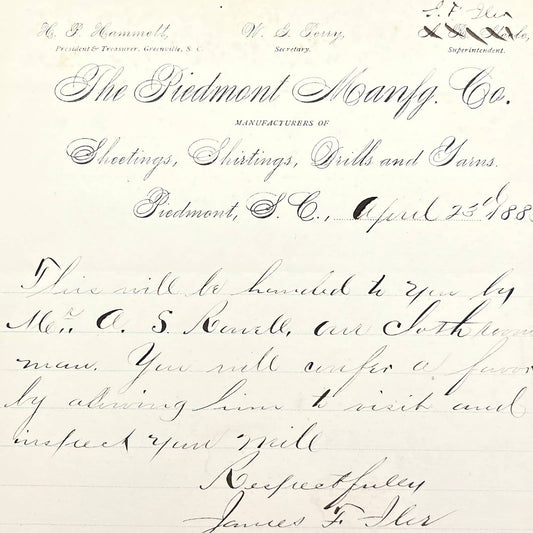 J. F. Iler
H. P. Hammett, W. G. Perry,
President & Treasurer, Greenville, S. C. Secretary. Superintendent.
The Piedmont Manfg. Co.
MANUFACTURERS OF
Sheetings, Shirtings, Drills and Yarns.
Piedmont, S. C., April 23d 188
This will be handed to you by
Mr. A. S. Rowell, our Cloth room
man. You will confer a favor
by allowing him to visit and
inspect your mill
Respectfully
James F. Iler